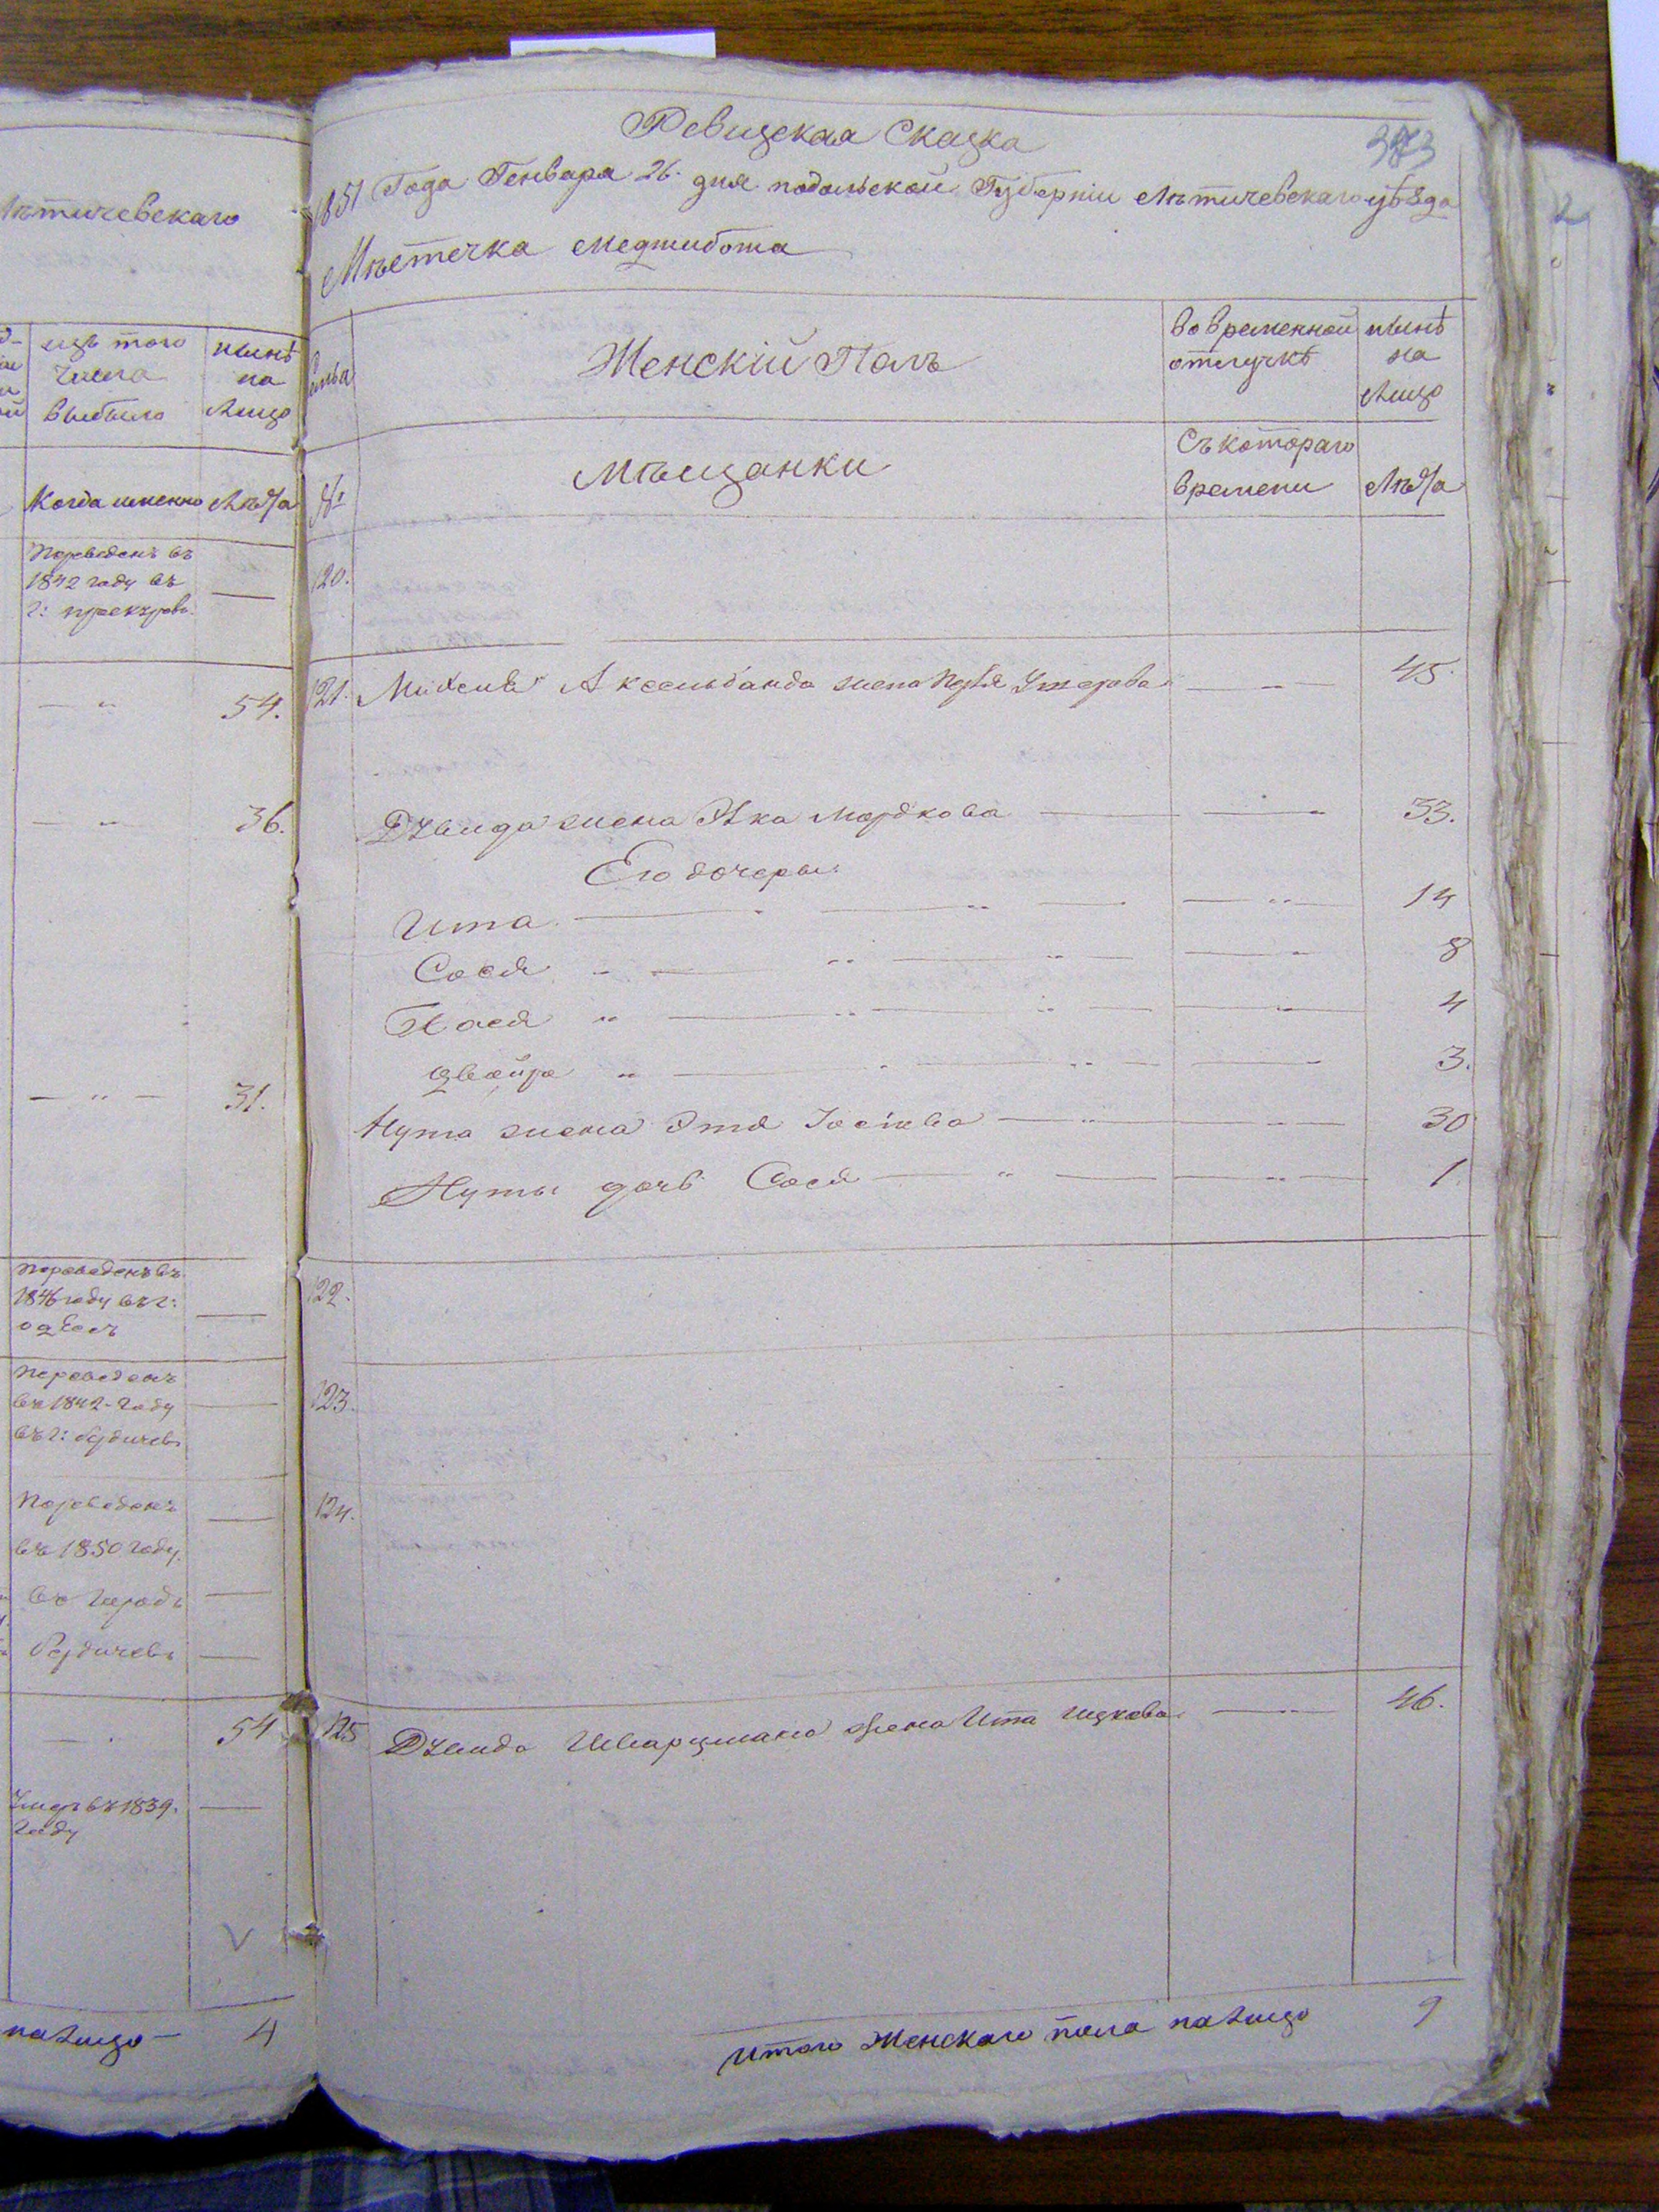 Лѣтичевскаго
изъ того нынѣ
числа на
выбыло лицо
Когда именно Лѣта
Переведенъ въ
1842 году въ
г:
— " 54.
— " 36.
— " — 31.
Переведенъ въ
1846 году въ г:
одесъ
Переведенъ
въ 1842 году
въ г: Бердичевъ
Переведенъ
въ 1850 году
въ городъ
Бердичевъ
54
Умеръ въ 1839.
году
V
налицо — 4
373
Ревизская Сказка
1851 Года Генваря 26. дня подольской Губерніи Лѣтичевскаго уѣзда
Мѣстечка Меджибожа
Женскій Полъ во временной нынѣ
отлучкѣ на
Лицо
№ Мѣщанки Съ котораго
времени Лѣта
120.
121. Аксельбанда жена 45.
жена Мордкова 33.
Его дочери
Ита 14
Сося 8
Пася 4
Двойра 3.
Нута жена Этя Іосіова 30
Нуты дочь Сося 1.
122.
123.
124.
125 Шварцмана жена Ита Ицкова 46.
Итого Женскаго пола налицо 9
2